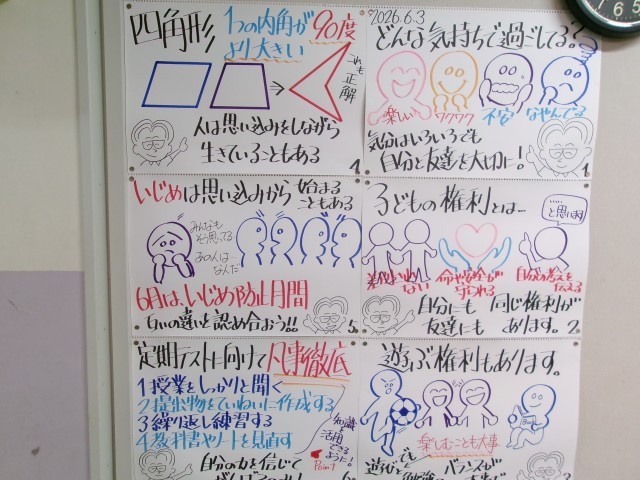 四角形
1つの内角が
90度
より大きい
これも正解
人は思い込みをしながら
生きていることもある
1
2026.6.3
どんな気持ちで過ごしてる?
楽しい
ワクワク
不安
なやんでる
気分はいろいろでも
自分と友達を大切に!
1
いじめは思い込みから始まる
こともある
みんなも
そう思ってる
あの人は
なんだ
6月は、いじめ防止月間
互いの違いを認め合おう!!
5.
子どもの権利とは…
…と思います
差別されない
命や安全が
守られる
自分の考えを
伝える
自分にも 同じ権利が
友達にも あります。
2.
定期テストに向けて凡事徹底
1授業をしっかりと聞く
2提出物をていねいに作成する
3繰り返し練習する
4教科書やノートを見直す
知識を
活用
できる
ように!
Point
自分の力を信じて
6
遊ぶ権利もあります。
楽しむことも大事
遊びでも
バランスが
7
6
5